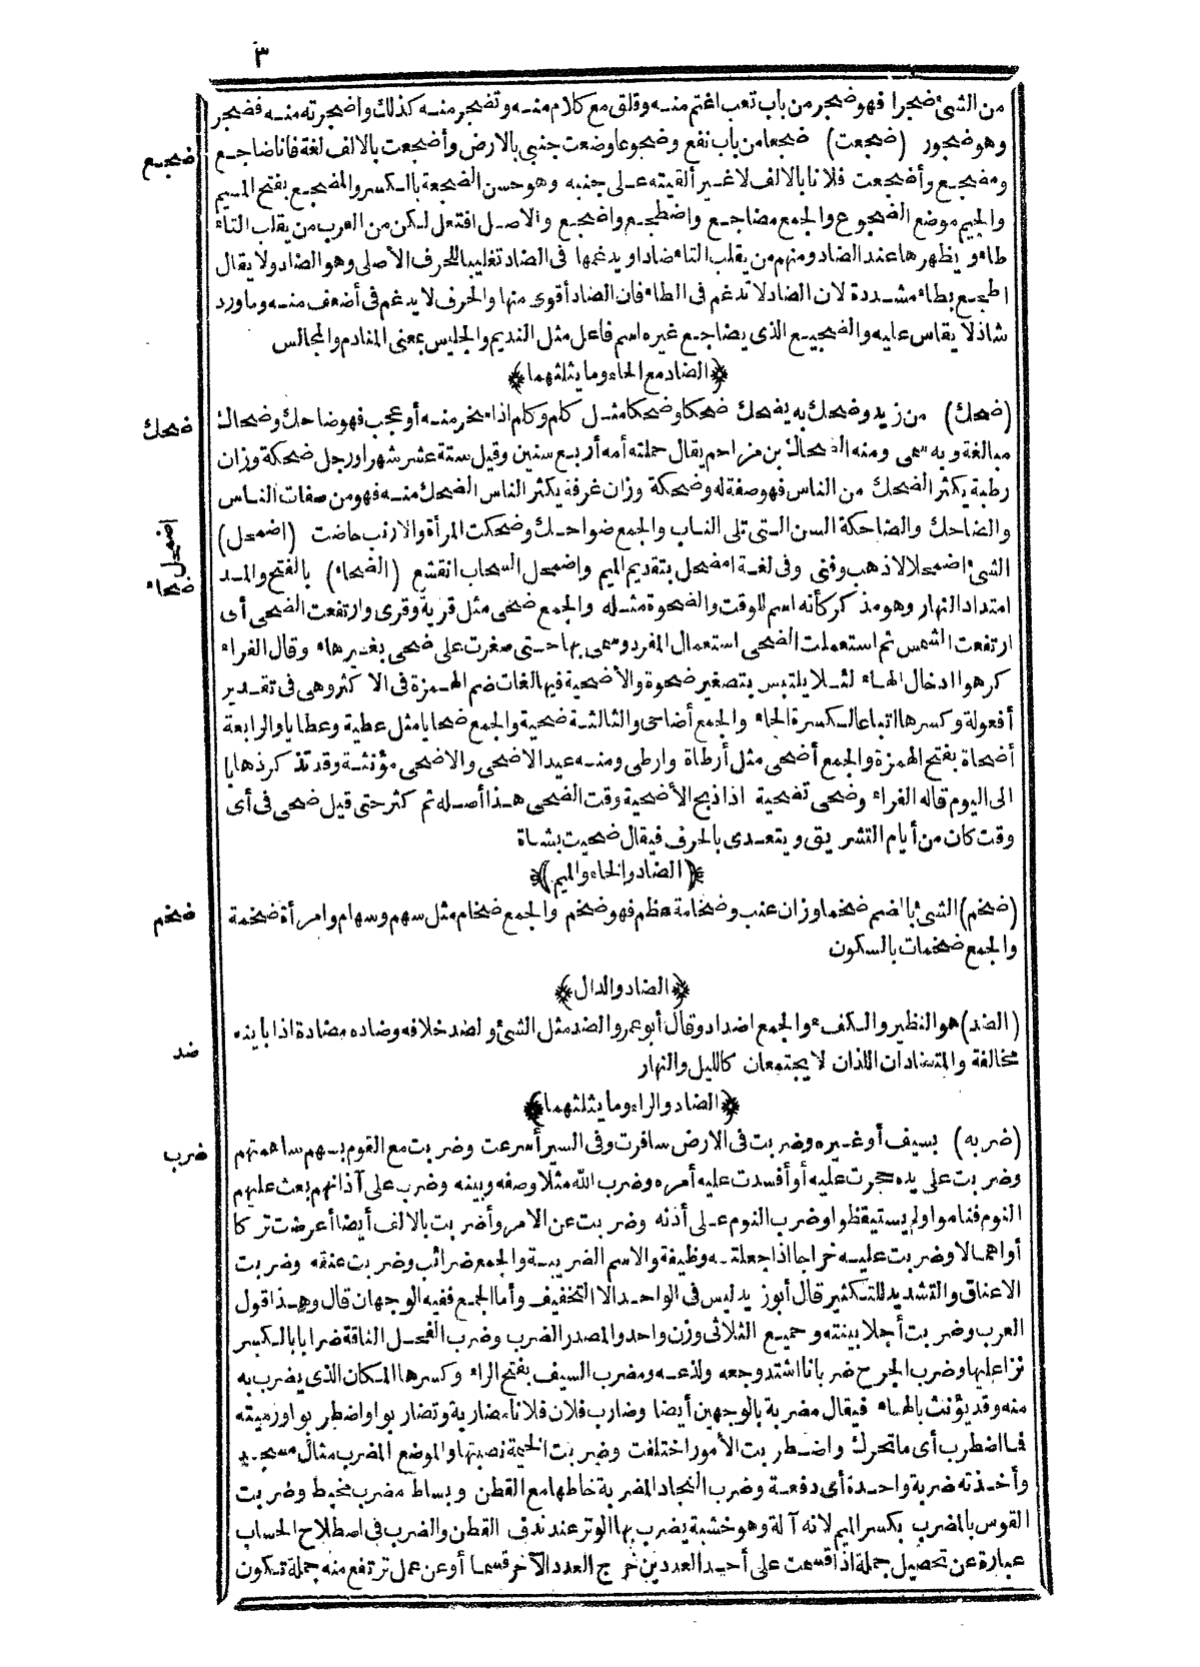 ٣
من الشئ ضجرا فهو ضجر من باب تعب اغتم منه وقلق مع كلام منه وتضجر منه كذلك واضجرته منه فضجر
وهو ضجور (ضجعت) ضجعا من باب نفع وضجوعا وضعت جنبى بالارض وأضجعت بالالف لغة فانا ضاجع
ضجع
ومضجع وأضجعت فلانا بالالف لا غير ألقيته على جنبه وهو حسن الضجعة بالكسر والمضجع بفتح الميم
والجيم موضع الضجوع والجمع مضاجع واضطجع واضجع والاصل افتعل لكن من العرب من يقلب التاء
طاء ويظهرها عند الضاد ومنهم من يقلب التاء ضادا ويدغمها فى الضاد تغليبا للحرف الأصلى وهو الضاد ولا يقال
اطجع بطاء مشددة لان الضاد لا تدغم فى الطاء فان الضاد أقوى منها والحرف لا يدغم فى أضعف منه وما ورد
شاذ لا يقاس عليه والضجيع الذى يضاجع غيره اسم فاعل مثل النديم والجليس بمعنى المنادم والمجالس
﴿الضاد مع الحاء وما يثلثهما﴾
(ضحك) من زيد وضحك به يضحك ضحكا وضحكا مثل كلم وكلم اذا سخر منه أو عجب فهو ضاحك وضحاك
ضحك
مبالغة وبه سمى ومنه الضحاك بن مزاحم يقال حملته أمه أربع سنين وقيل ستة عشر شهرا ورجل ضحكة وزان
رطبة يكثر الضحك من الناس فهو صفة له وضحكة وزان غرفة يكثر الناس الضحك منه فهو من صفات الناس
والضاحك والضاحكة السن التى تلى الناب والجمع ضواحك وضحكت المرأة والارنب حاضت (اضمحل)
اضمحل
الشئ اضمحلالا ذهب وفنى وفى لغة امضحل بتقديم الميم واضمحل السحاب انقشع (الضحاء) بالفتح والمد
ضحاء
امتداد النهار وهو مذكر كأنه اسم للوقت والضحوة مثله والجمع ضحى مثل قرية وقرى وارتفعت الضحى أى
ارتفعت الشمس ثم استعملت الضحى استعمال المفرد وسمى بها حتى صغرت على ضحى بغير هاء وقال الفراء
كرهوا ادخال الهاء لئلا يلتبس بتصغير ضحوة والأضحية فيها لغات ضم الهمزة فى الاكثر وهى فى تقدير
أفعولة وكسرها اتباعا لكسرة الحاء والجمع أضاحى والثالثة ضحية والجمع ضحايا مثل عطية وعطايا والرابعة
أضحاة بفتح الهمزة والجمع أضحى مثل أرطاة وارطى ومنه عيد الاضحى والاضحى مؤنثة وقد تذكر ذهابا
الى اليوم قاله الفراء وضحى تضحية اذا ذبح الأضحية وقت الضحى هذا أصله ثم كثر حتى قيل ضحى فى أى
وقت كان من أيام التشريق ويتعدى بالحرف فيقال ضحيت بشاة
﴿الضاد والخاء والميم﴾
(ضخم) الشئ بالضم ضخما وزان عنب وضخامة عظم فهو ضخم والجمع ضخام مثل سهم وسهام وامرأة ضخمة
ضخم
والجمع ضخمات بالسكون
﴿الضاد والدال﴾
(الضد) هو النظير والكفء والجمع اضداد وقال أبو عمرو الضد مثل الشئ والضد خلافه وضاده مضادة اذا باينه
ضد
مخالفة والمتضادان اللذان لا يجتمعان كالليل والنهار
﴿الضاد والراء وما يثلثهما﴾
(ضربه) بسيف أو غيره وضربت فى الارض سافرت وفى السير أسرعت وضربت مع القوم بسهم ساهمتهم
ضرب
وضربت على يده حجرت عليه أو أفسدت عليه أمره وضرب الله مثلا وصفه وبينه وضرب على آذانهم بعث عليهم
النوم فناموا ولم يستيقظوا وضرب النوم على أذنه وضربت عن الامر وأضربت بالالف أيضا أعرضت تركا
أو اهمالا وضربت عليه خراجا اذا جعلته وظيفة والاسم الضريبة والجمع ضرائب وضربت عنقه وضربت
الاعناق والتشديد للتكثير قال أبو زيد ليس فى الواحد الا التخفيف وأما الجمع ففيه الوجهان قال وهذا قول
العرب وضربت أجلا بينته وجميع الثلاثى وزن واحد والمصدر الضرب وضرب الفحل الناقة ضرابا بالكسر
نزا عليها وضرب الجرح ضربانا اشتد وجعه ولذعه ومضرب السيف بفتح الراء وكسرها المكان الذى يضرب به
منه وقد يؤنث بالهاء فيقال مضربة بالوجهين أيضا وضارب فلان فلانا مضاربة وتضاربوا واضطربوا ورميته
فما اضطرب أى ما تحرك واضطربت الأمور اختلفت وضربت الخيمة نصبتها والموضع المضرب مثال مسجد
وأخذته ضربة واحدة أى دفعة وضرب النجاد المضربة خاطها مع القطن وبساط مضرب مخيط وضربت
القوس بالمضرب بكسر الميم لانه آلة وهو خشبة يضرب بها الوتر عند ندف القطن والضرب فى اصطلاح الحساب
عبارة عن تحصيل جملة اذا قسمت على أحد العددين خرج العدد الآخر قسما أو عن عمل ترتفع منه جملة تكون